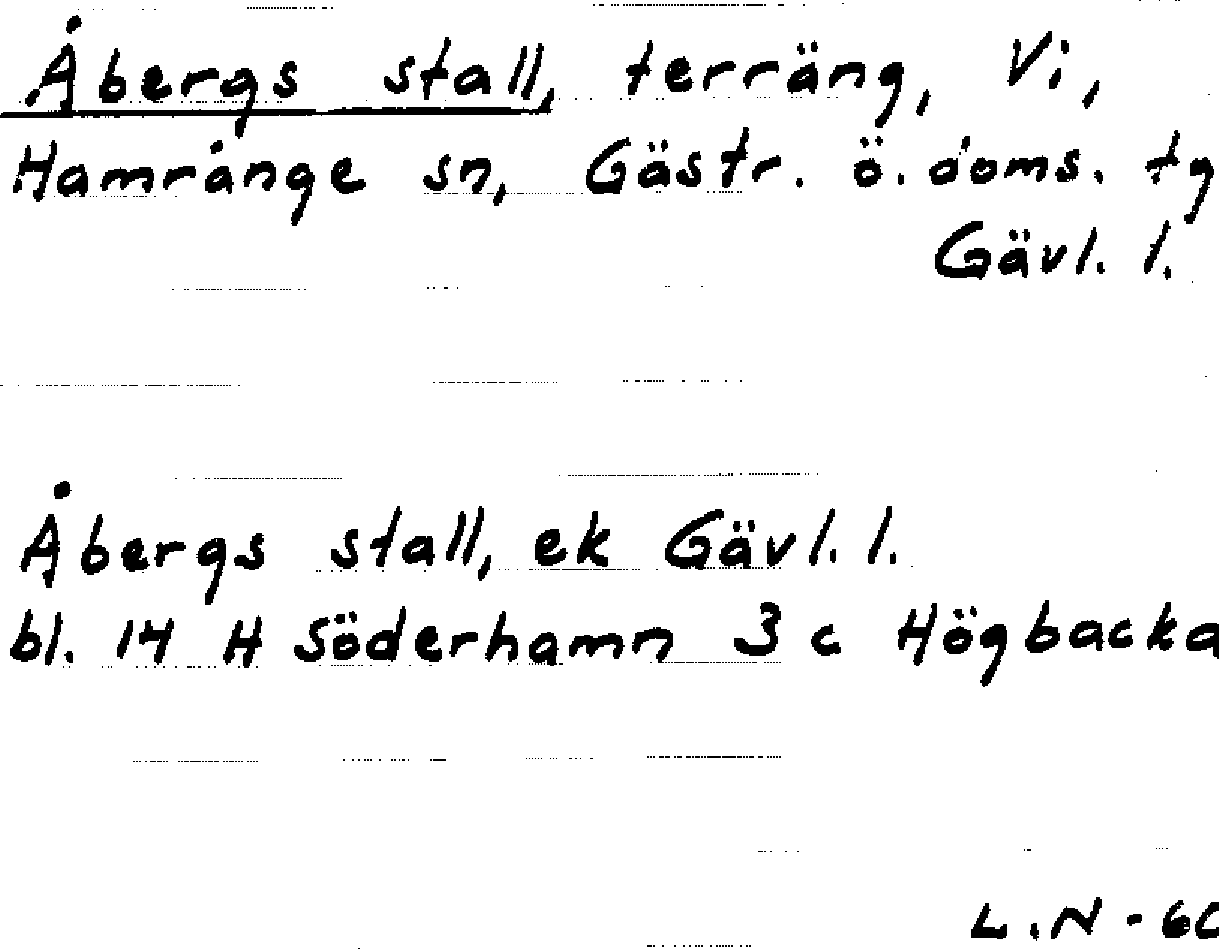 Åbergs stall, terräng, Vi,
Hamrånge sn, Gästr. ö. doms. tg
Gävl. l.
Åbergs stall, ek Gävl. l.
bl. 14 H Söderhamn 3 c Högbacka
L.N - 60